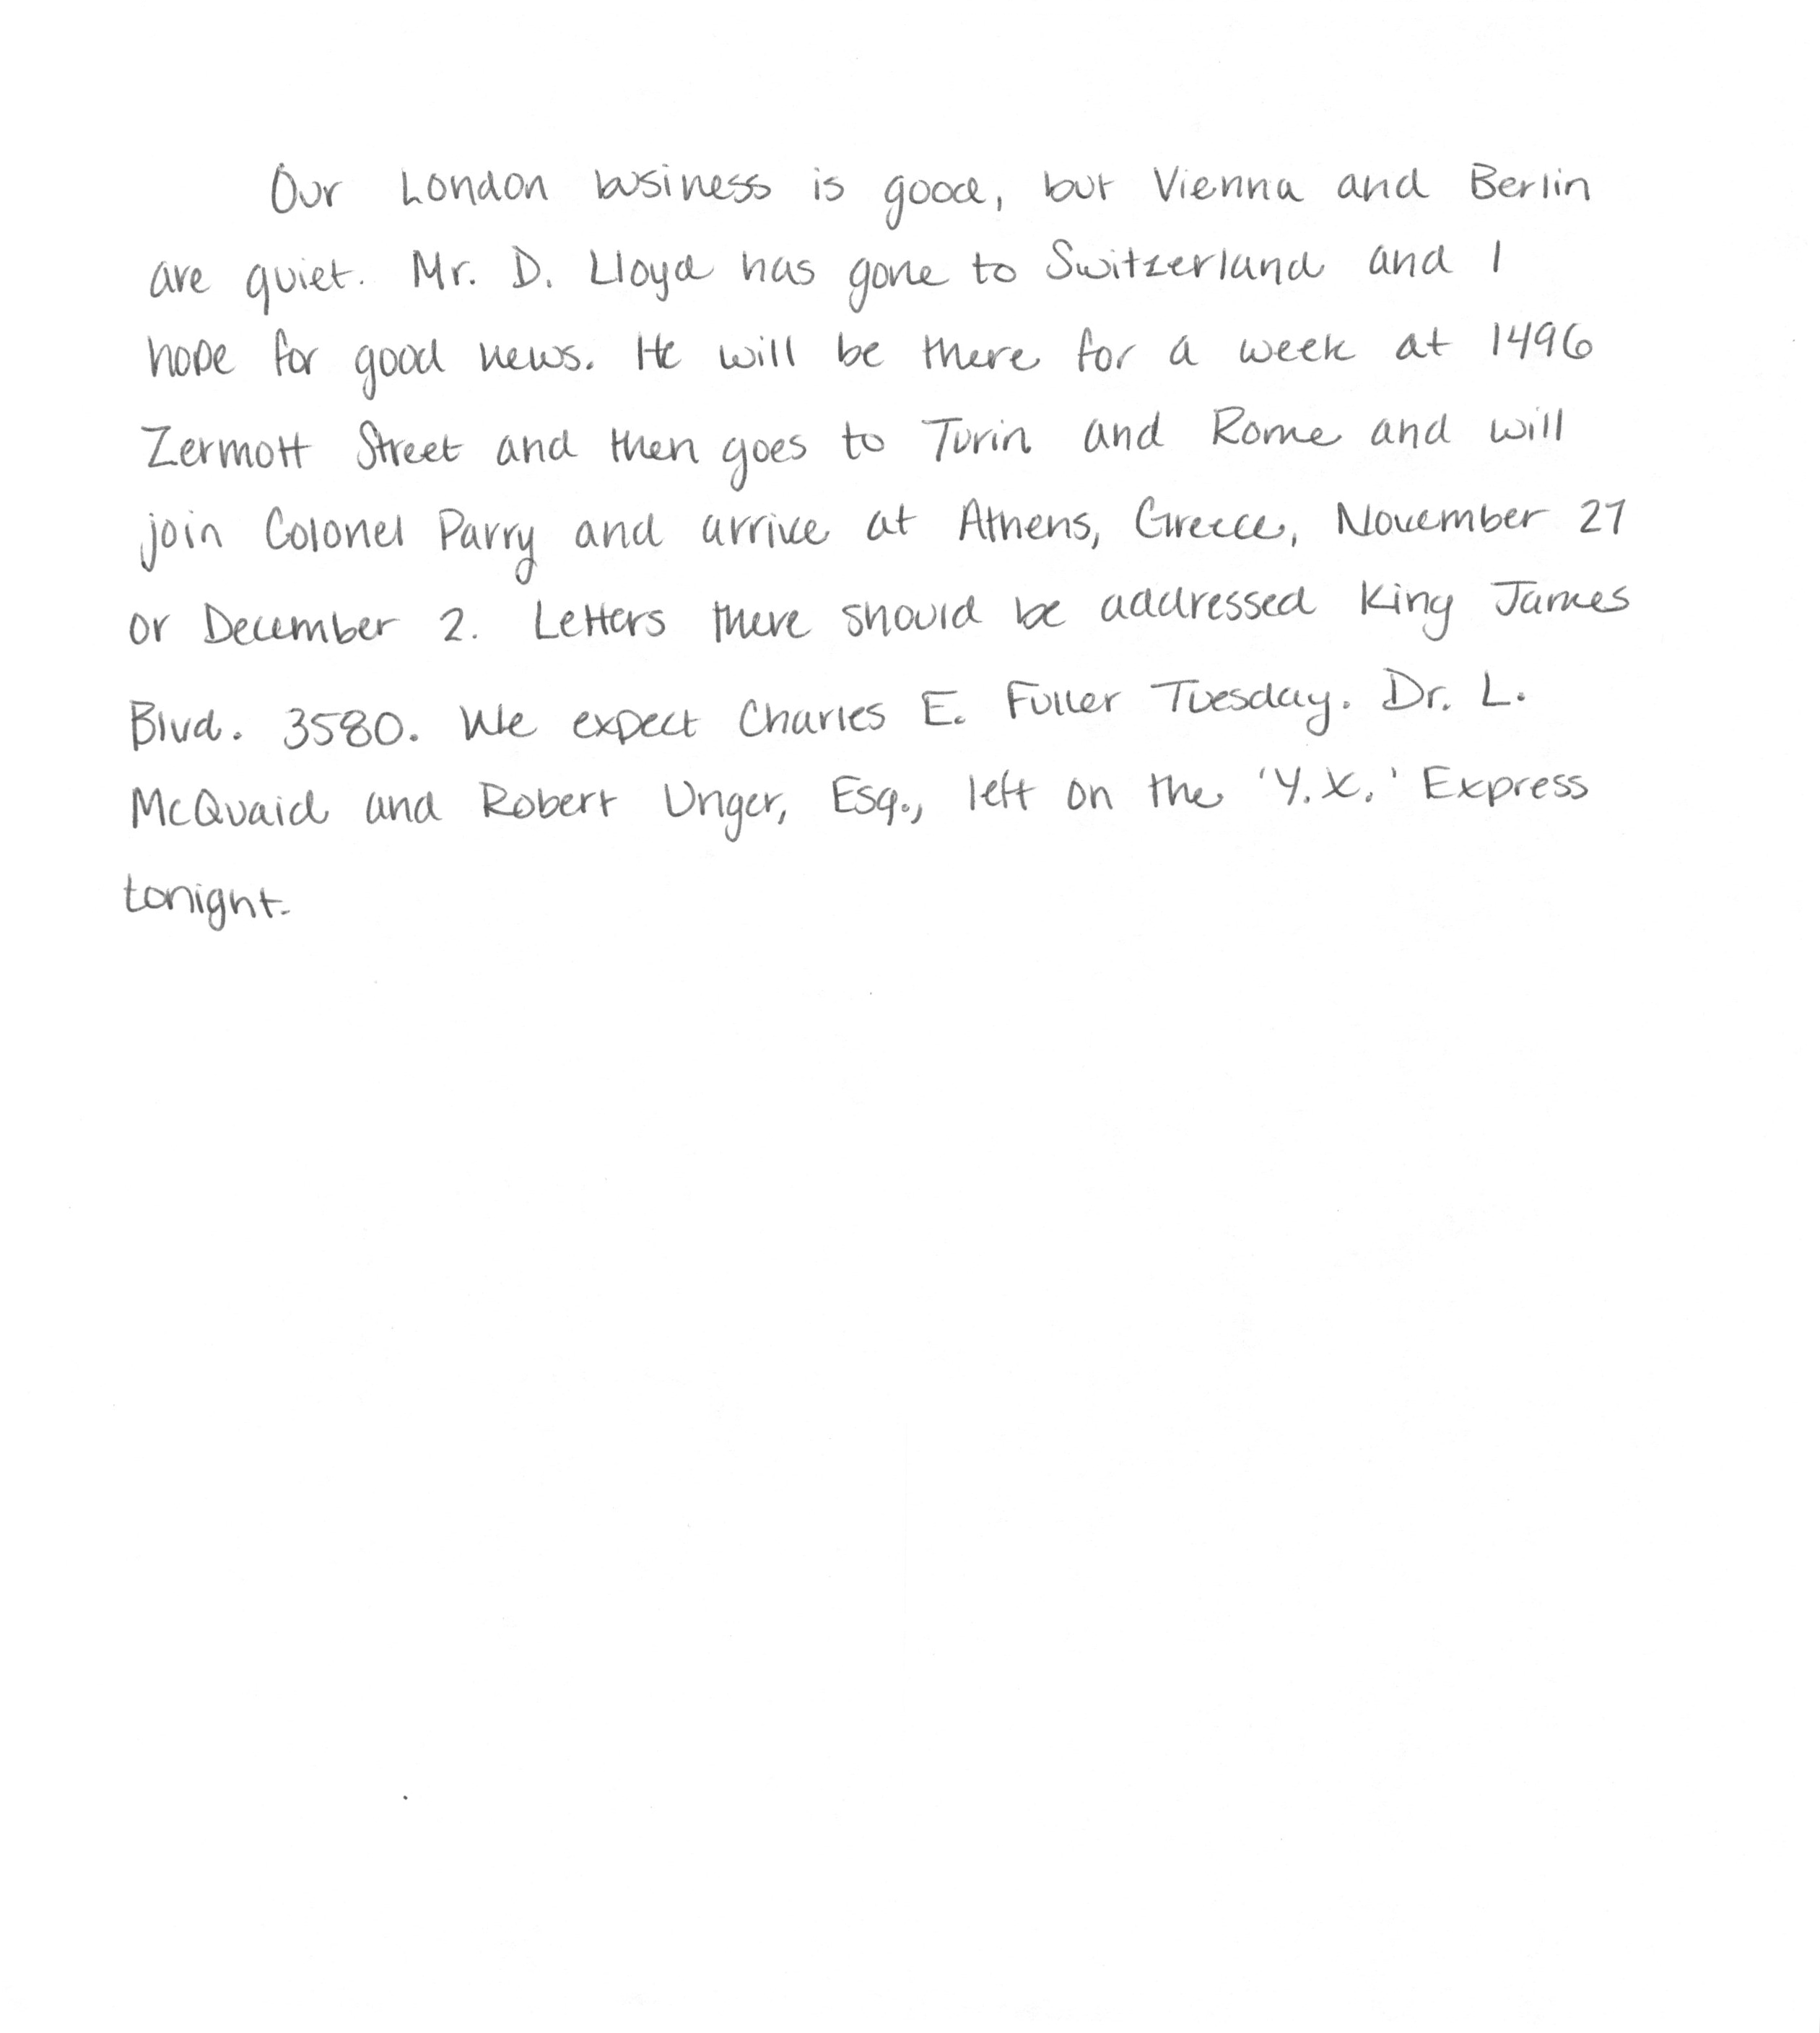 Our London business is good, but Vienna and Berlin
are quiet. Mr. D. Lloyd has gone to Switzerland and I
hope for good news. He will be there for a week at 1496
Zermott Street and then goes to Turin and Rome and will
join Colonel Parry and arrive at Athens, Greece, November 27
or December 2. Letters there should be addressed King James
Blvd. 3580. We expect Charles E. Fuller Tuesday. Dr. L.
McQuaid and Robert Unger, Esq., left on the 'Y.X.' Express
tonight.